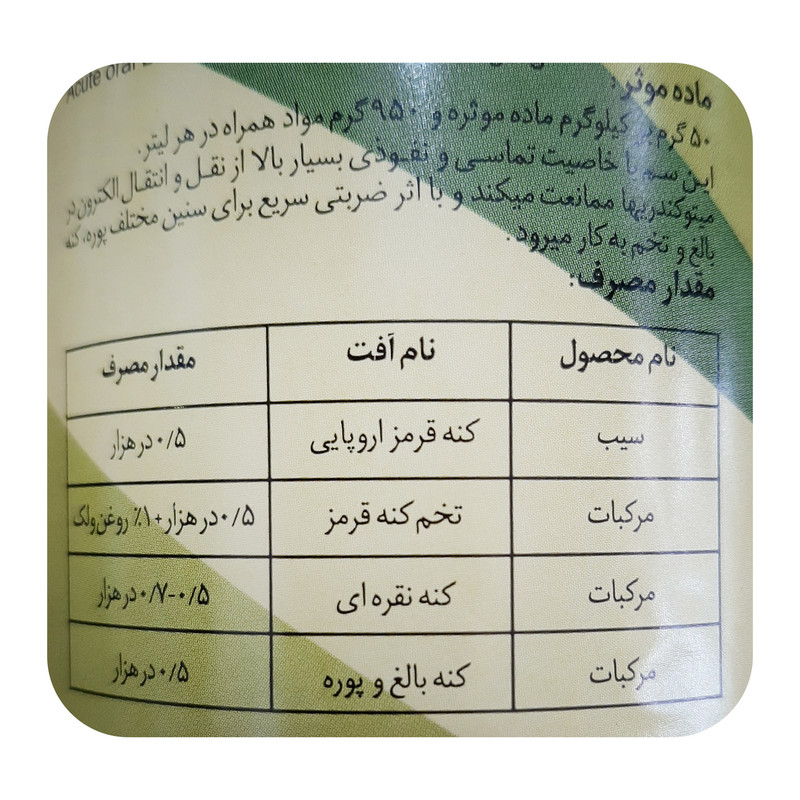 Acute oral
ماده موثر:
۵۰ گرم بر کیلوگرم ماده موثره و ۹۵۰ گرم مواد همراه در هر لیتر.
این سم با خاصیت تماسی و نفوذی بسیار بالا از نقل و انتقال الکترون در
میتوکندریها ممانعت میکند و با اثر ضربتی سریع برای سنین مختلف پوره، کنه
بالغ و تخم به کار میرود.
مقدار مصرف:
نام محصول نام آفت مقدار مصرف
سیب کنه قرمز اروپایی ۰/۵ در هزار
مرکبات تخم کنه قرمز ۰/۵ در هزار+۱٪ روغن ولک
مرکبات کنه نقره ای ۰/۷-۰/۵ در هزار
مرکبات کنه بالغ و پوره ۰/۵ در هزار